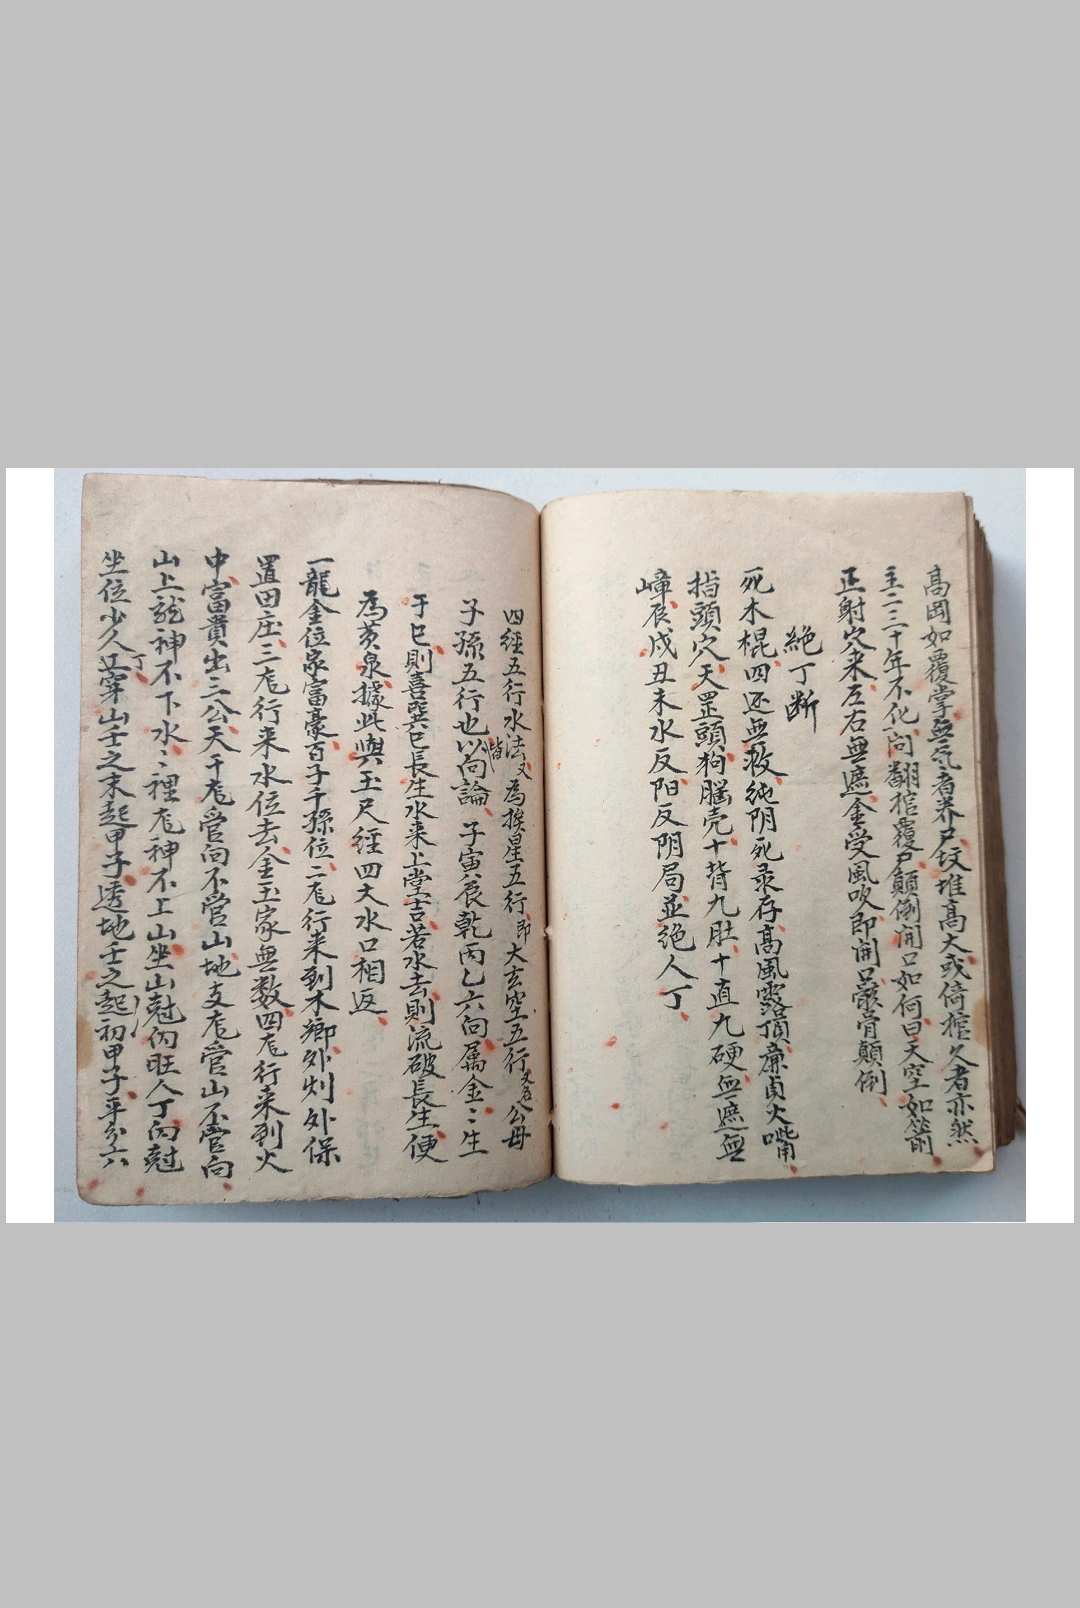 高岡如覆掌無氣者养尸坟堆高大或倚棺久者亦然
主二三十年不化问翻棺覆尸顛倒開口如何曰天空如箭
正射穴来左右無遮金受風吹即開口骸骨顛倒
絶丁断
死木棍四还無救純阴死录存高風露頂亷貞火嘴
指頭穴天罡頭狗脳壳十背九肚十直九硬無遮無
嶂辰戍丑未水反阳反阴局並绝人丁
四經五行水法又為挨星五行即大玄空五行又名公母
子孫五行也皆以向論子寅辰乾丙乙六向属金〻生
于巳則喜巽巳長生水来上堂吉若水去則流破長生便
為黄泉據此與玉尺經四大水口相返
一龍金位家富豪百子千孫位二龙行来到木鄉外州外保
置田庄三龙行来水位去金玉家無数四龙行来到火
中富貴出三公天干龙管向不管山地支龙管山不管向
山上龍神不下水〻裡龙神不上山坐山尅向旺人丁向尅
坐位少人丁穿山壬之末起甲子透地壬之初起甲子平分六